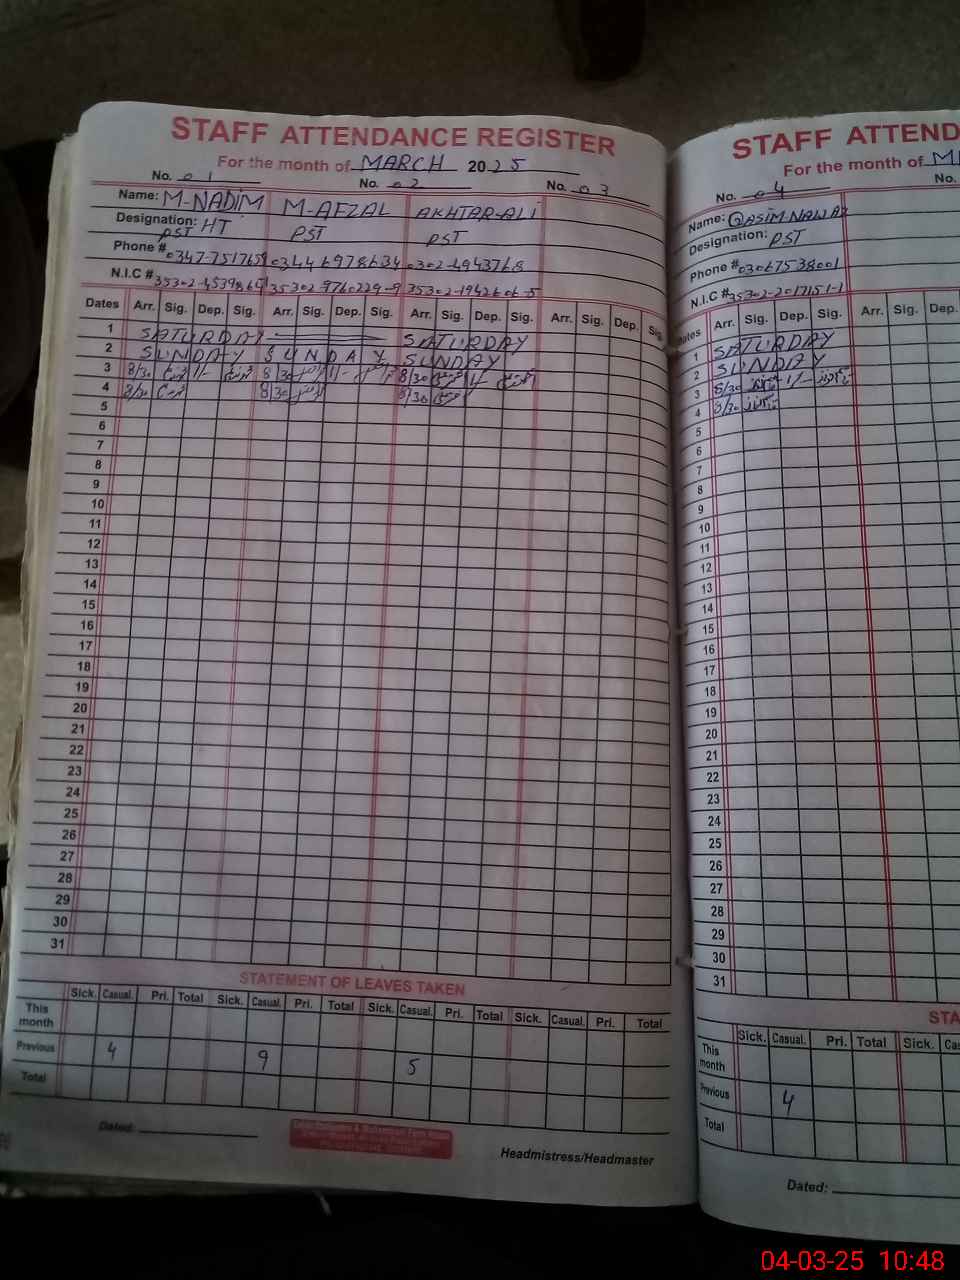 STAFF ATTENDANCE REGISTER
For the month of MARCH 2025
No. 01 No. 02 No. 03
Name: M-NADIM M-AFZAL AKHTAR-ALI
Designation: PST HT PST PST
Phone # 03446978634 0302-4943768
N.I.C # 35302-9760229-9 35302-1942606-5
Dates Arr. Sig. Dep. Sig. Arr. Sig. Dep. Sig. Arr. Sig. Dep. Sig. Arr. Sig. Dep. Sig.
1 SATURDAY SATURDAY
2 SUNDAY SUNDAY SUNDAY
3 8/30 1/- 8/30 1/- 8/30 1/-
4 8/30 8/30 8/30
5
6
7
8
9
10
11
12
13
14
15
16
17
18
19
20
21
22
23
24
25
26
27
28
29
30
31
STATEMENT OF LEAVES TAKEN
Sick. Casual. Pri. Total Sick. Casual. Pri. Total Sick. Casual. Pri. Total Sick. Casual. Pri. Total
This month
Previous 4 9 5
Total
Dated:
Headmistress/Headmaster
STAFF ATTEND
For the month of M
No. 04 No.
Name: QASIM NAWAZ
Designation: PST
Phone # 03067538001
N.I.C # 35302-2017151-1
Dates Arr. Sig. Dep. Sig. Arr. Sig. Dep.
1 SATURDAY
2 SUNDAY
3 8/30 1/-
4 8/30
5
6
7
8
9
10
11
12
13
14
15
16
17
18
19
20
21
22
23
24
25
26
27
28
29
30
31
STA
Sick. Casual. Pri. Total Sick. Cas
This month
Previous 4
Total
Dated:
04-03-25 10:48